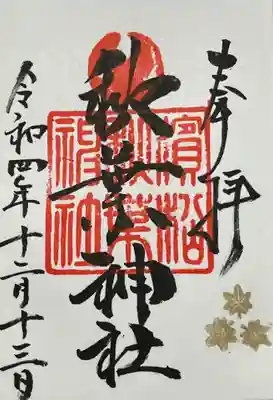 奉拝
秋葉神社
濱松
秋葉
神社
令和四年十二月十三日